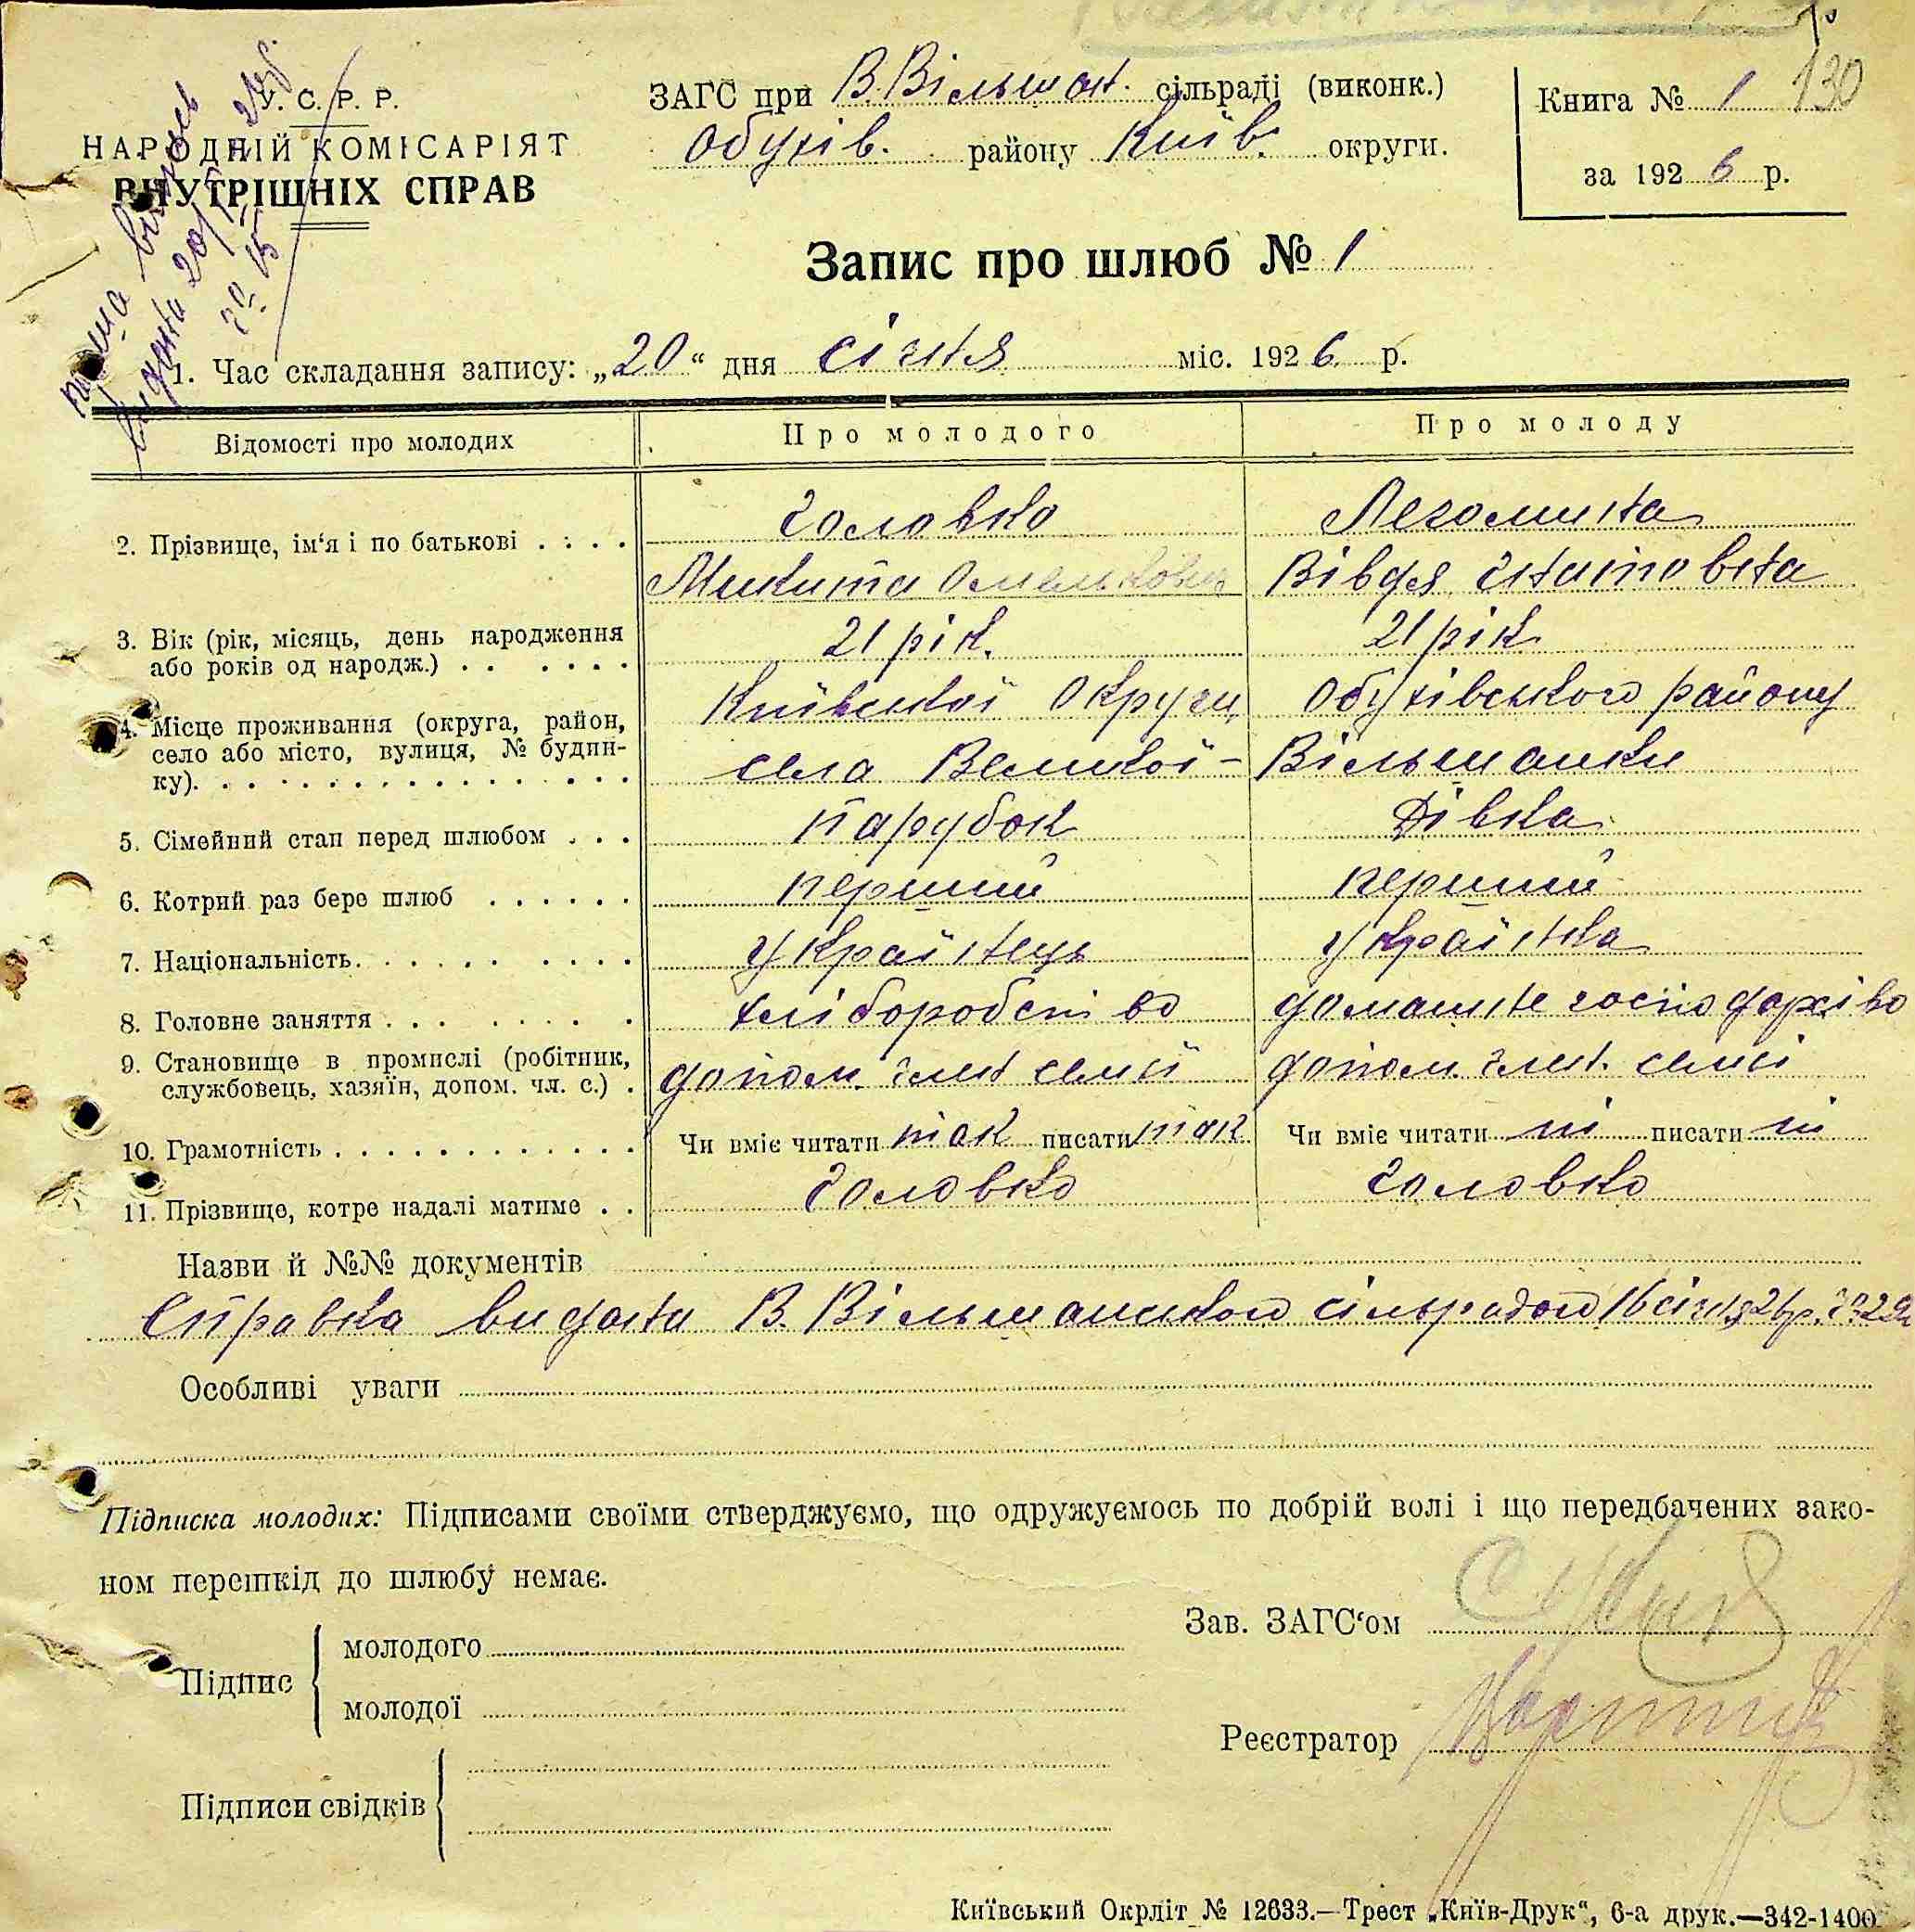 130
У. С. Р. Р.
НАРОДНІЙ КОМІСАРІЯТ
ВНУТРІШНІХ СПРАВ
ЗАГС при В. Вільшан. сільраді (виконк.)
Обухів. району Київ. округи.
Книга № 1
за 1926 р.
Запис про шлюб № 1
1. Час складання запису: „20“ дня січня міс. 1926 р.
Відомості про молодих Про молодого Про молоду
2. Прізвище, ім‘я і по батькові . . . . Головко Легомина
Микита Омелькович Вівдя Гнатовна
3. Вік (рік, місяць, день народження 21 рік. 21 рік
або років од народж.) . . . . . .
4. Місце проживання (округа, район, Київської Округи, Обухівського району
село або місто, вулиця, № будин- села Великої- Вільшанки
ку). . . . . . . . . . . . . . .
5. Сімейний стан перед шлюбом . . . парубок Дівка
6. Котрий раз бере шлюб . . . . . . перший перший
7. Національність. . . . . . . . . . Українець Українка
8. Головне заняття . . . . . . . . хліборобство домашнє господарство
9. Становище в промислі (робітник,
службовець, хазяїн, допом. чл. с.) . допом. член семії допом. член. семії
10. Грамотність . . . . . . . . . . . . . Чи вміє читати так писати так Чи вміє читати ні писати ні
11. Прізвище, котре надалі матиме . . Головко Головко
Назви й №№ документів
Справка видана В. Вільшанською сільрадою 16 січня 26р.
Особливі уваги
Підписка молодих: Підписами своїми стверджуємо, що одружуємось по добрій волі і що передбачених зако-
ном перешкід до шлюбу немає.
Зав. ЗАГС‘ом
Підпис
молодого
молодої
Реєстратор
Підписи свідків
Київський Окрліт № 12633.—Трест „Київ-Друк“, 6-а друк.—342-1400